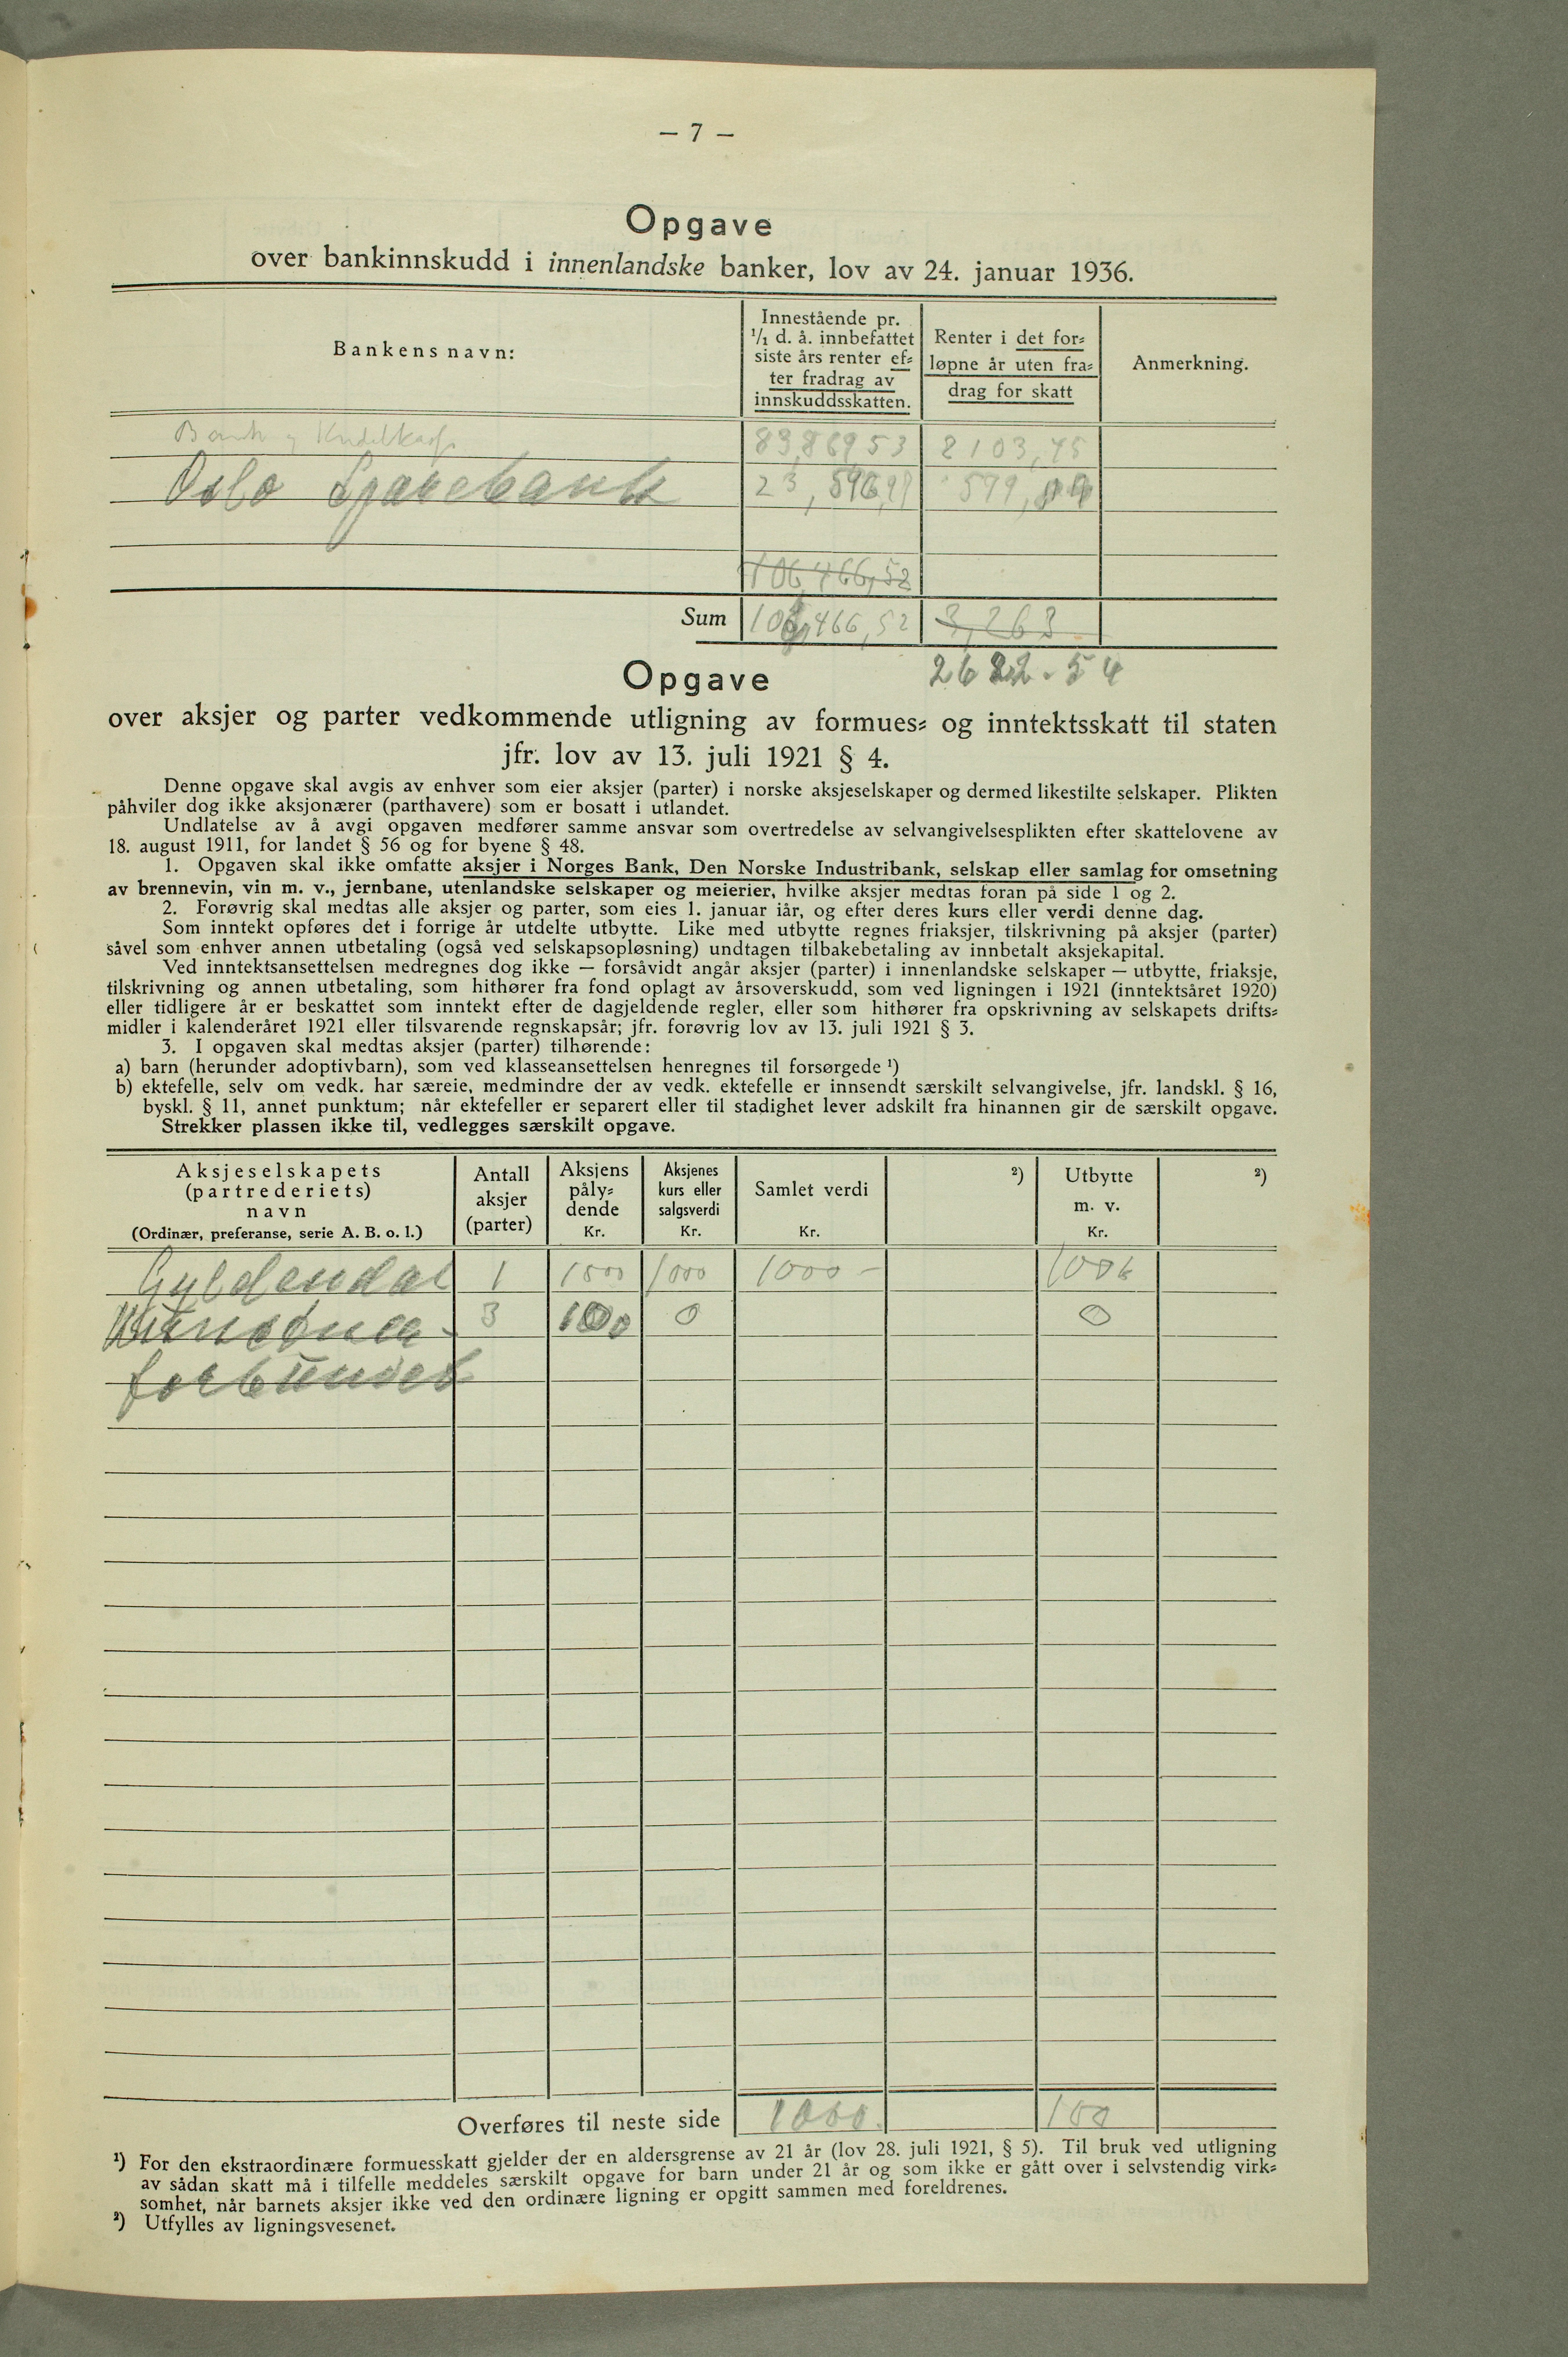 — 7 —
Opgave
over bankinnskudd i innenlandske banker, lov av 24. januar 1936.
Bankens navn:
Innestående pr.
¹/₁ d. å. innbefattet
siste års renter ef=
ter fradrag av
innskuddsskatten.
Renter i det for=
løpne år uten fra=
drag for skatt
Anmerkning.
83,869 53 2103,45
Oslo Sparebank 23,596,99 579,
106,466,52
Sum 106,466,52 3,263
2682.54
Opgave
over aksjer og parter vedkommende utligning av formues= og inntektsskatt til staten
jfr. lov av 13. juli 1921 § 4.
Denne opgave skal avgis av enhver som eier aksjer (parter) i norske aksjeselskaper og dermed likestilte selskaper. Plikten
påhviler dog ikke aksjonærer (parthavere) som er bosatt i utlandet.
Undlatelse av å avgi opgaven medfører samme ansvar som overtredelse av selvangivelsesplikten efter skattelovene av
18. august 1911, for landet § 56 og for byene § 48.
1. Opgaven skal ikke omfatte aksjer i Norges Bank, Den Norske Industribank, selskap eller samlag for omsetning
av brennevin, vin m. v., jernbane, utenlandske selskaper og meierier, hvilke aksjer medtas foran på side 1 og 2.
2. Forøvrig skal medtas alle aksjer og parter, som eies 1. januar iår, og efter deres kurs eller verdi denne dag.
Som inntekt opføres det i forrige år utdelte utbytte. Like med utbytte regnes friaksjer, tilskrivning på aksjer (parter)
såvel som enhver annen utbetaling (også ved selskapsopløsning) undtagen tilbakebetaling av innbetalt aksjekapital.
Ved inntektsansettelsen medregnes dog ikke — forsåvidt angår aksjer (parter) i innenlandske selskaper — utbytte, friaksje,
tilskrivning og annen utbetaling, som hithører fra fond oplagt av årsoverskudd, som ved ligningen i 1921 (inntektsåret 1920)
eller tidligere år er beskattet som inntekt efter de dagjeldende regler, eller som hithører fra opskrivning av selskapets drifts=
midler i kalenderåret 1921 eller tilsvarende regnskapsår; jfr. forøvrig lov av 13. juli 1921 § 3.
3. I opgaven skal medtas aksjer (parter) tilhørende:
a) barn (herunder adoptivbarn), som ved klasseansettelsen henregnes til forsørgede ¹)
b) ektefelle, selv om vedk. har særeie, medmindre der av vedk. ektefelle er innsendt særskilt selvangivelse, jfr. landskl. § 16,
byskl. § 11, annet punktum; når ektefeller er separert eller til stadighet lever adskilt fra hinannen gir de særskilt opgave.
Strekker plassen ikke til, vedlegges særskilt opgave.
Aksjeselskapets
(partrederiets)
navn
(Ordinær, preferanse, serie A. B. o. l.)
Antall
aksjer
(parter)
Aksjens
påly=
dende
Kr.
Aksjenes
kurs eller
salgsverdi
Kr.
Samlet verdi
Kr.
²)
Utbytte
m. v.
Kr.
²)
Gyldendal 1 1000 1000 –
3 0 0
forbundet
Overføres til neste side 1000. 100
¹) For den ekstraordinære formuesskatt gjelder der en aldersgrense av 21 år (lov 28. juli 1921, § 5). Til bruk ved utligning
av sådan skatt må i tilfelle meddeles særskilt opgave for barn under 21 år og som ikke er gått over i selvstendig virk=
somhet, når barnets aksjer ikke ved den ordinære ligning er opgitt sammen med foreldrenes.
²) Utfylles av ligningsvesenet.